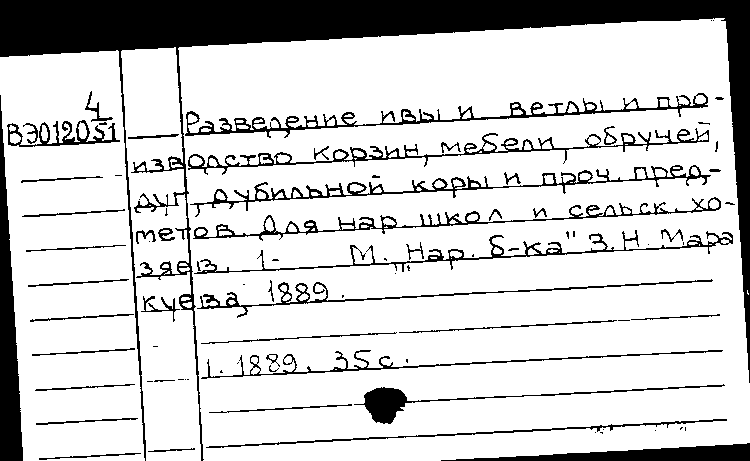 4
ВЭ012051
Разведение ивы и ветлы и про-
изводство корзин, мебели, обручей,
дуг, дубильной коры и проч. пред-
метов. Для нар. школ и сельск. хо-
зяев. 1- М. „Нар. б-ка" З.Н. Мара
куева, 1889.
1. 1889. 35 с.